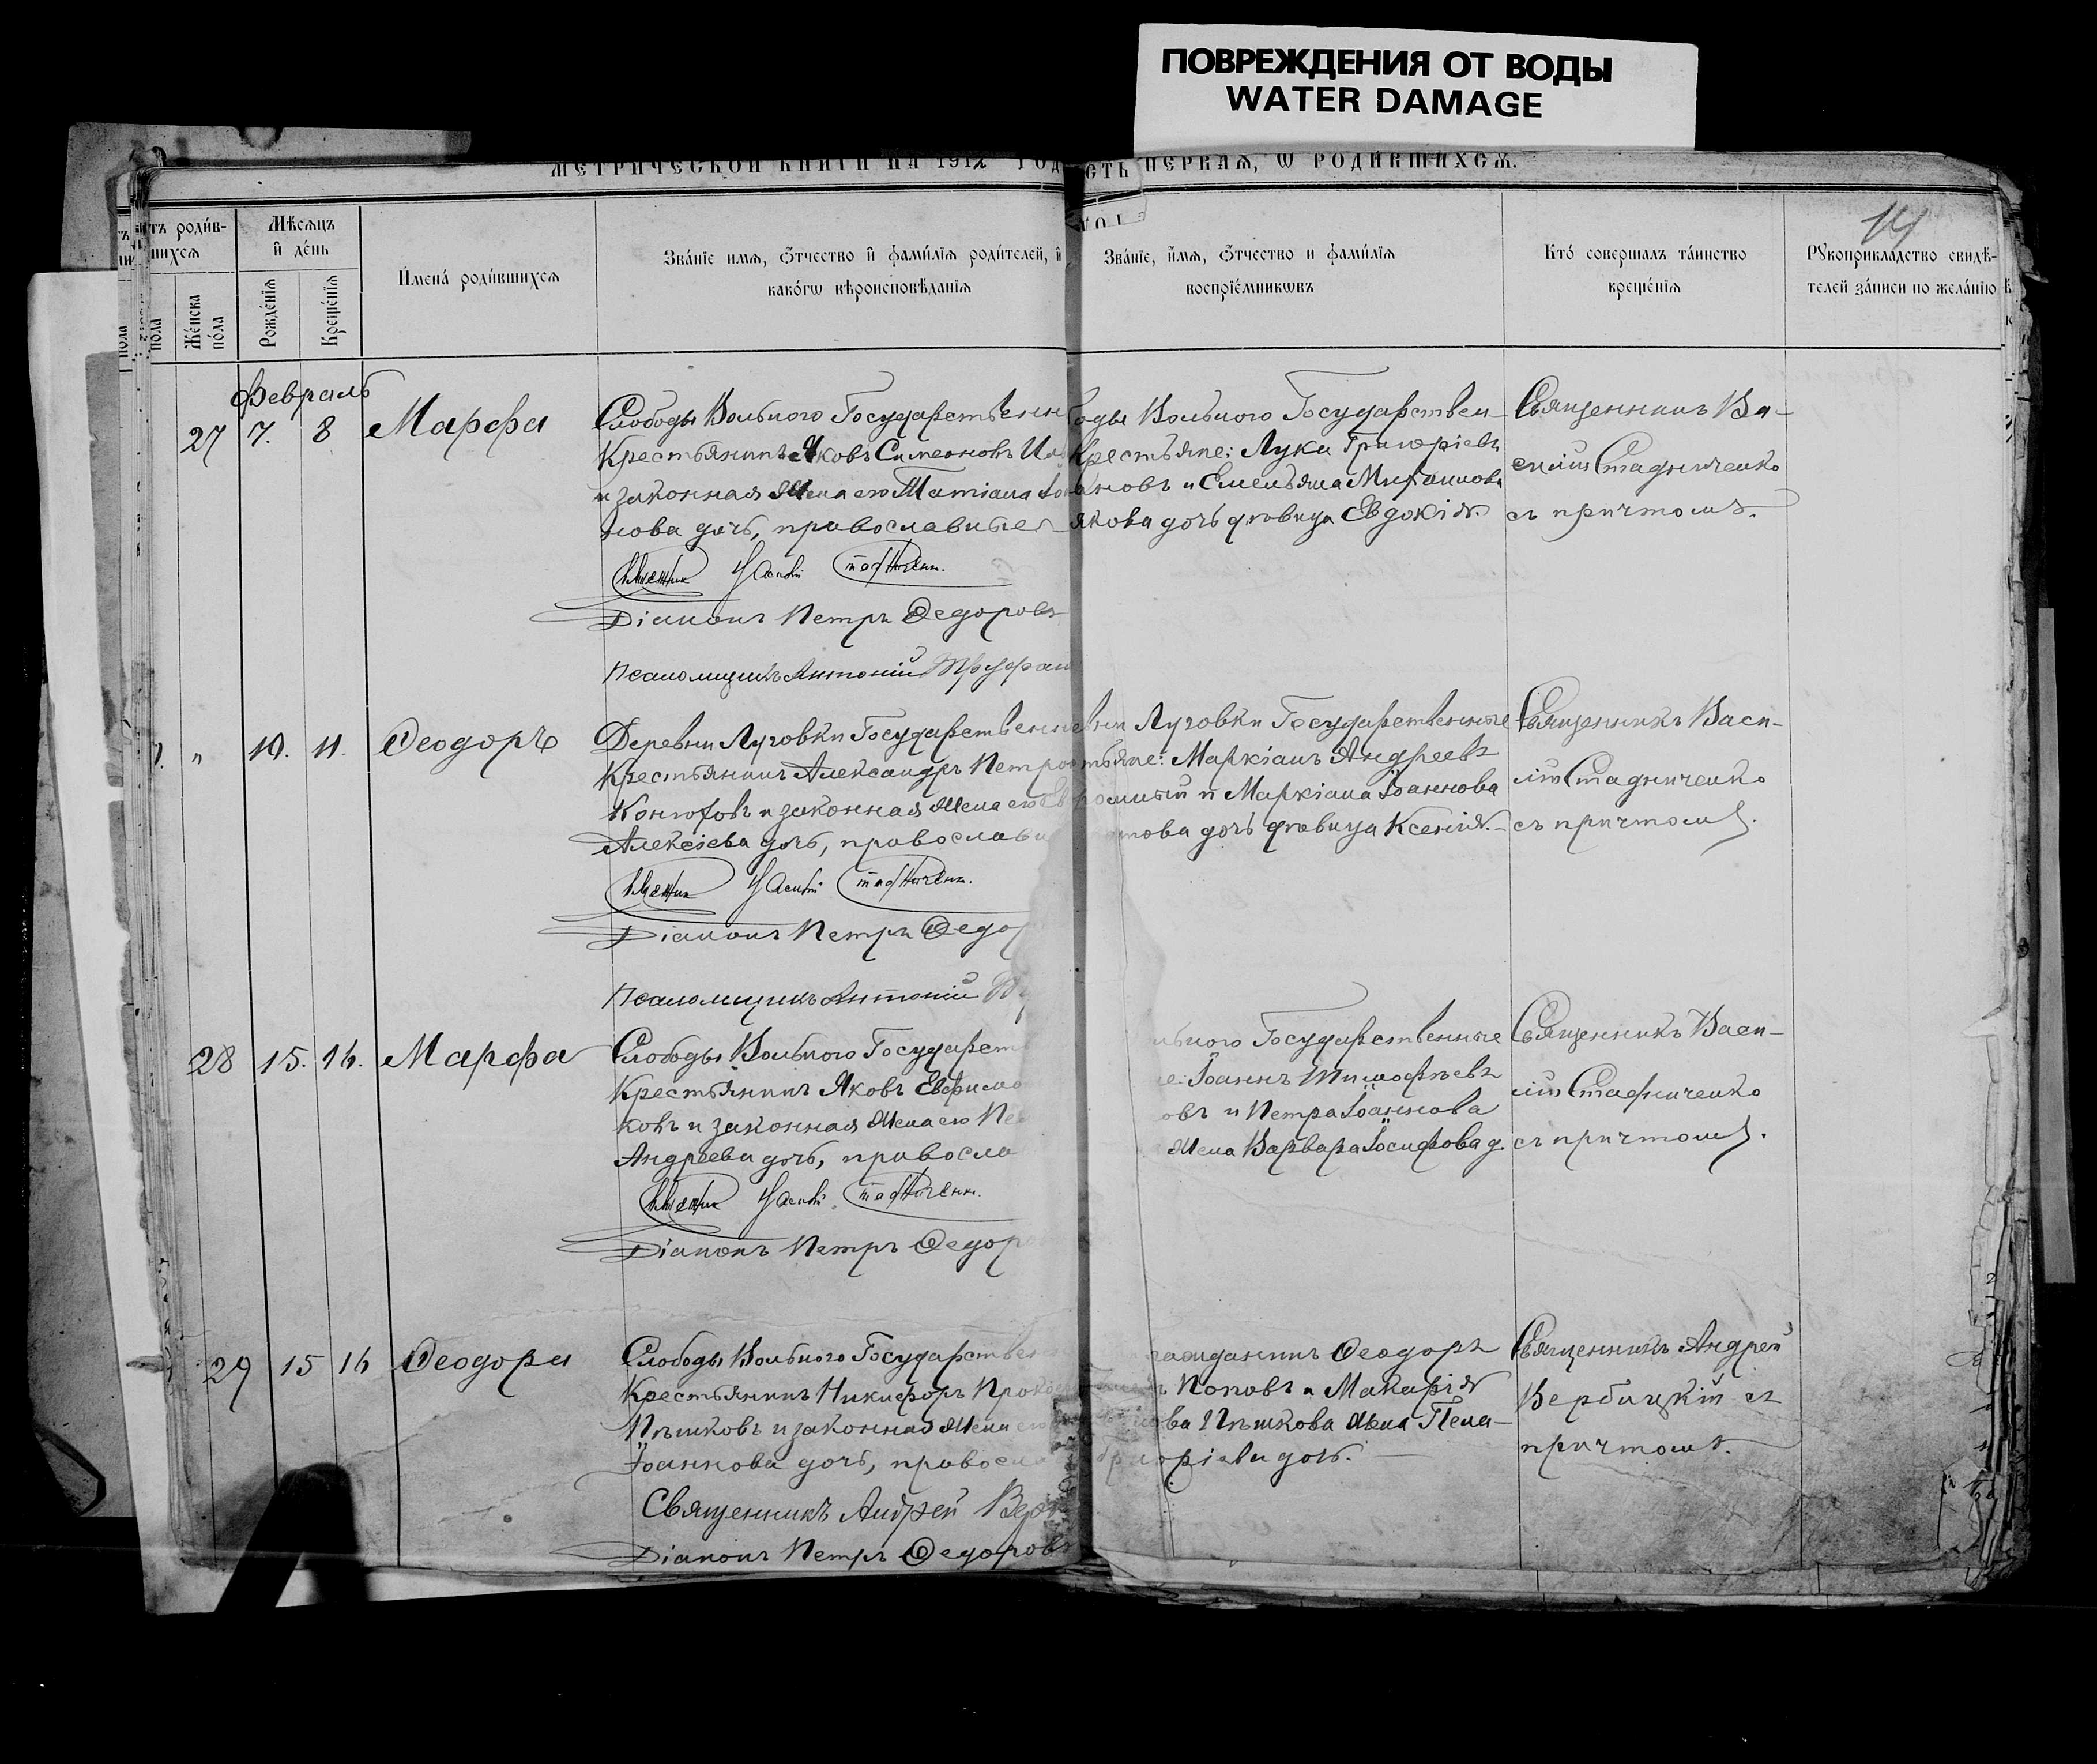 ПОВРЕЖДЕНИЯ ОТ ВОДЫ
WATER DAMAGE
МЕТРИЧЕСКОЙ КНИГИ НА 1912 ГОД
СТЬ ПЕРВАЯ, Ѡ РОДИ́ВШИХСѦ.
14
роди́в-
шихсѧ
Же́нска
по́ла
Мѣ́сѧцъ
и҆ де́нь
Рожде́нїѧ
Креще́нїѧ
И҆мена̀ роди́вшихсѧ
Зва́нїе имѧ, Ѻ҆тчество и҆ фами́лїѧ роди́телей, и҆
како́гѡ вѣроисповѣ́данїѧ
Зва́нїе, и҆́мѧ, Ѻ҆тчество и фами́лїѧ
воспрїе́мникѡвъ
Кто́ соверша́лъ та́инство
креще́нїѧ
Рꙋкоприкла́дство свидѣ́-
телей за́писи по жела́нїю
Февраль
27 7. 8 Марфа
Слободы Вольного Государственн
Крестьянинъ Яковъ Симеоновъ
и законная жена его Татіана
нова дочь, православные
Діаконъ Петръ Ѳедоровъ
Псаломщикъ Антоній
оды Вольного Государствен-
Крестьяне: Лука Григоріевъ
ановъ и Емельяна
якова дочь дѣвица Евдокія.
Священникъ Ва-
силій Стадниченко
съ причтомъ.
" 10. 11. Ѳеодоръ
Деревни Луговки Государственн
Крестьянинъ Александръ Петро
и законная жена его
Алексіева дочь, православн
Діаконъ Петръ Ѳедор
Псаломщикъ Антоній
вни Луговки Государственные
стьяне: Маркіанъ Андреевъ
и Маркіана Іоаннова
това дочь дѣвица Ксенія.-
Священникъ Васи-
лій Стадниченко
съ причтомъ.
28 15. 16. Марфа
Слободы Вольного Государст
Крестьянинъ Яковъ Евфимо
ковъ и законная жена его
Андреева дочь, правосла
Діаконъ Петръ Ѳедор
ьного Государственные
е: Іоаннъ Тимофѣевъ
овъ и Петра Іоаннова
жена Варвара Іосифова д.
Священникъ Васи-
лій Стадниченко
съ причтомъ.
29 15 16 Ѳеодора
Слободы Вольного Государствен
Крестьянинъ Никифоръ Проко
Пѣшковъ и законная жена его
Іоаннова дочь, правосла
Священникъ Андрей Верб
Діаконъ Петръ Ѳедоровъ
ражданинъ Ѳеодоръ
Поповъ и Макарія
ова Пѣшкова жена Пела-
Григоріева дочь.
Священникъ Андрей
Вербицкій съ
причтомъ.